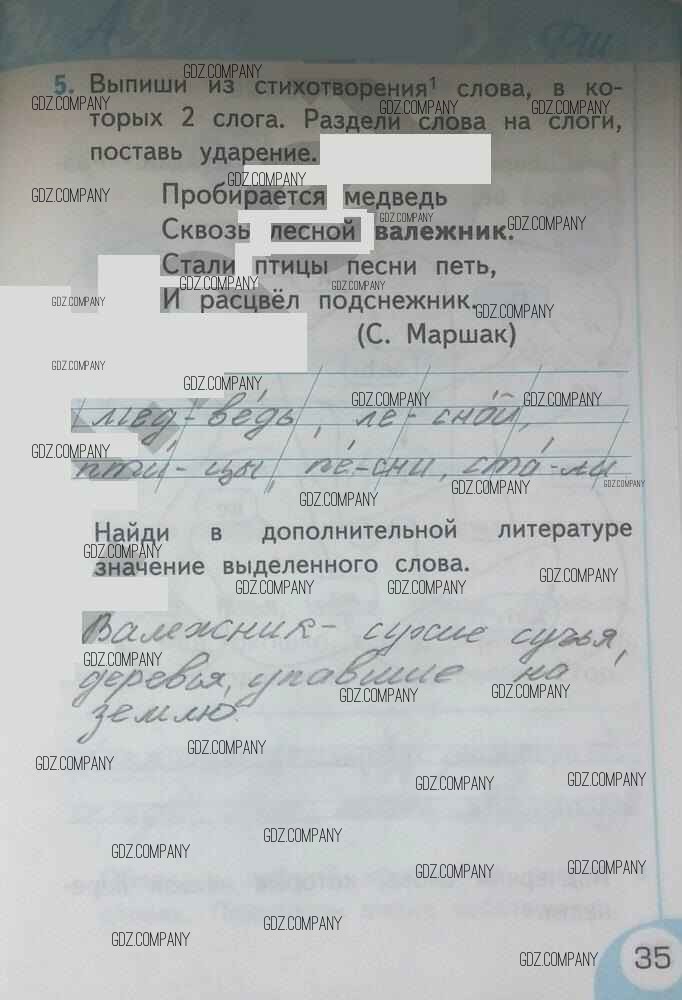 5. Выпиши из стихотворения¹ слова, в ко-
торых 2 слога. Раздели слова на слоги,
поставь ударение.
Пробирается медведь
Сквозь лесной валежник.
Стали птицы песни петь,
И расцвёл подснежник.
(С. Маршак)
мед-ве́дь, ле-сно́й,
пти́-цы, пе́-сни, ста́-ли
Найди в дополнительной литературе
значение выделенного слова.
Валежник- сухие сучья,
деревья, упавшие на
землю.
35
GDZ.COMPANY